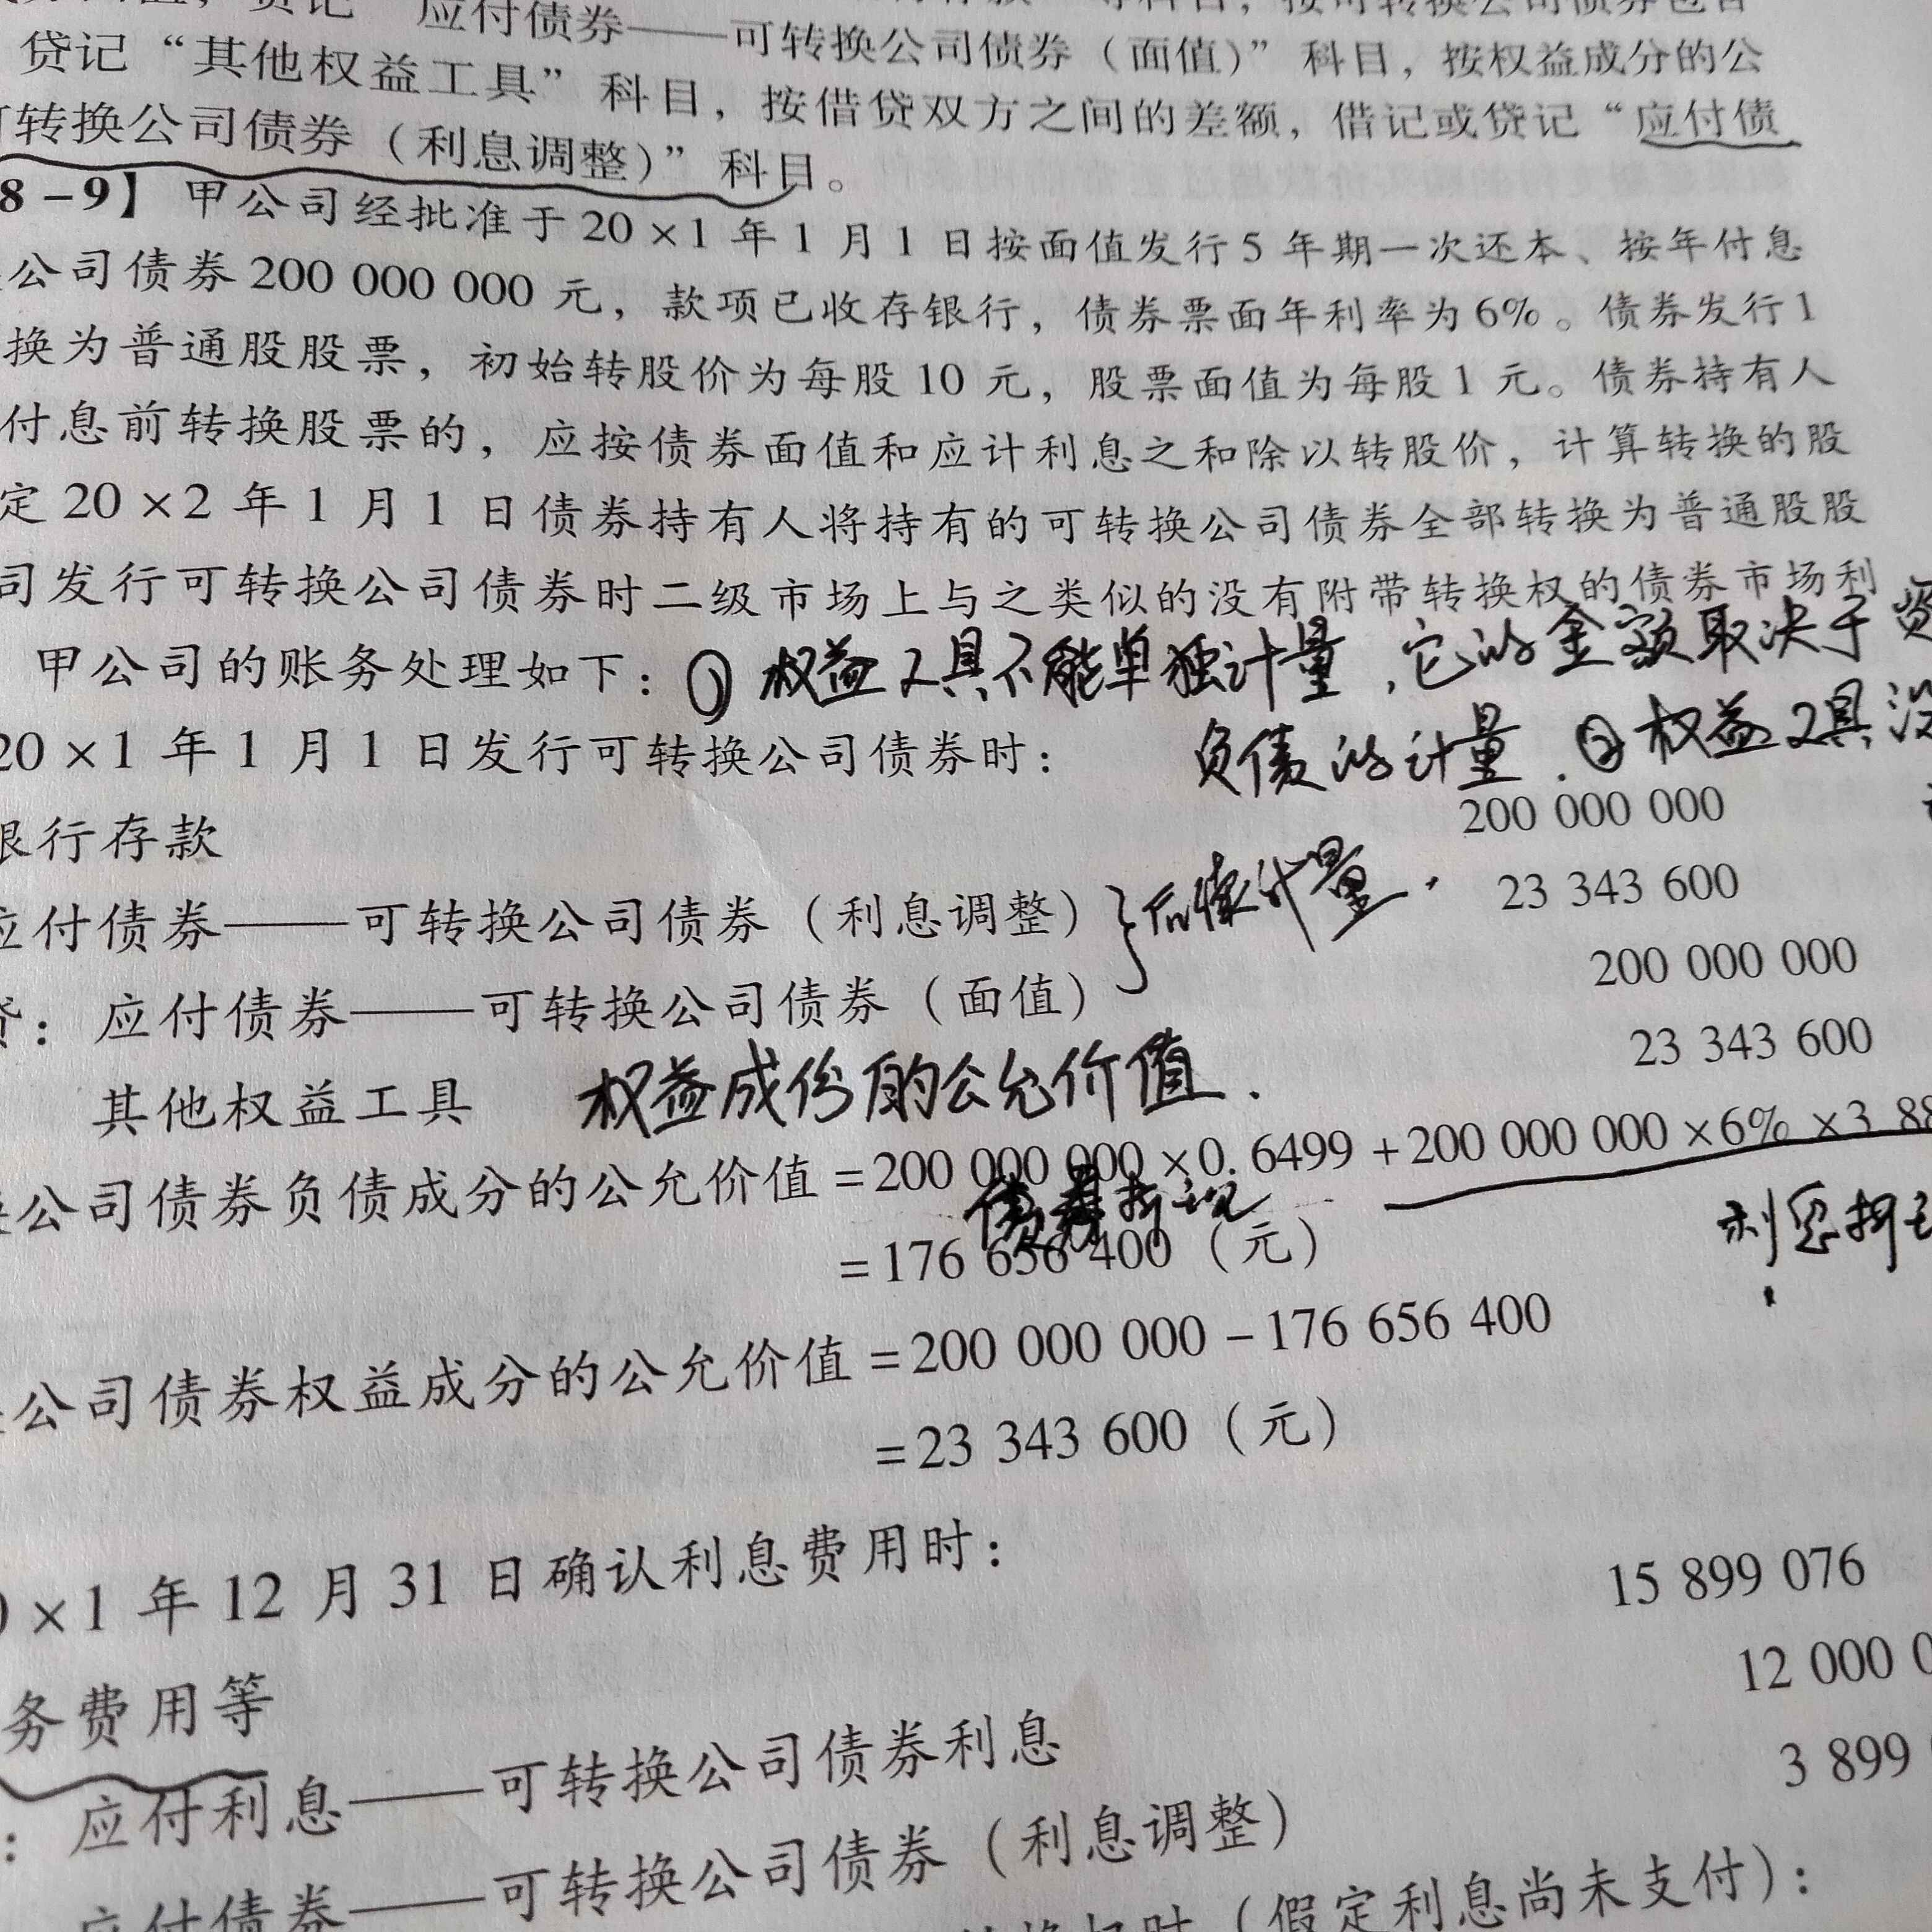 应付债券——可转换公司债券（面值）”科目，按权益成分的公
贷记“其他权益工具”科目，按借贷双方之间的差额，借记或贷记“应付债
转换公司债券（利息调整）”科目。
8-9】 甲公司经批准于20×1年1月1日按面值发行5年期一次还本、按年付息
公司债券200 000 000元，款项已收存银行，债券票面年利率为6%。债券发行1
换为普通股股票，初始转股价为每股10元，股票面值为每股1元。债券持有人
付息前转换股票的，应按债券面值和应计利息之和除以转股价，计算转换的股
定20×2年1月1日债券持有人将持有的可转换公司债券全部转换为普通股股
司发行可转换公司债券时二级市场上与之类似的没有附带转换权的债券市场利
甲公司的账务处理如下：① 权益工具不能单独计量，它的金额取决于
负债的计量．② 权益工具没
20×1年1月1日发行可转换公司债券时：
银行存款 200 000 000
应付债券——可转换公司债券（利息调整） 23 343 600
后续计量．
贷：应付债券——可转换公司债券（面值） 200 000 000
其他权益工具 权益成份的公允价值． 23 343 600
公司债券负债成分的公允价值=200 000 000×0.6499+200 000 000×6%×3.88
债券折现 利息折现
=176 656 400（元）
公司债券权益成分的公允价值=200 000 000-176 656 400
=23 343 600（元）
×1年12月31日确认利息费用时：
务费用等 15 899 076
：应付利息——可转换公司债券利息 12 000 0
应付债券——可转换公司债券（利息调整） 3 899
（假定利息尚未支付）：